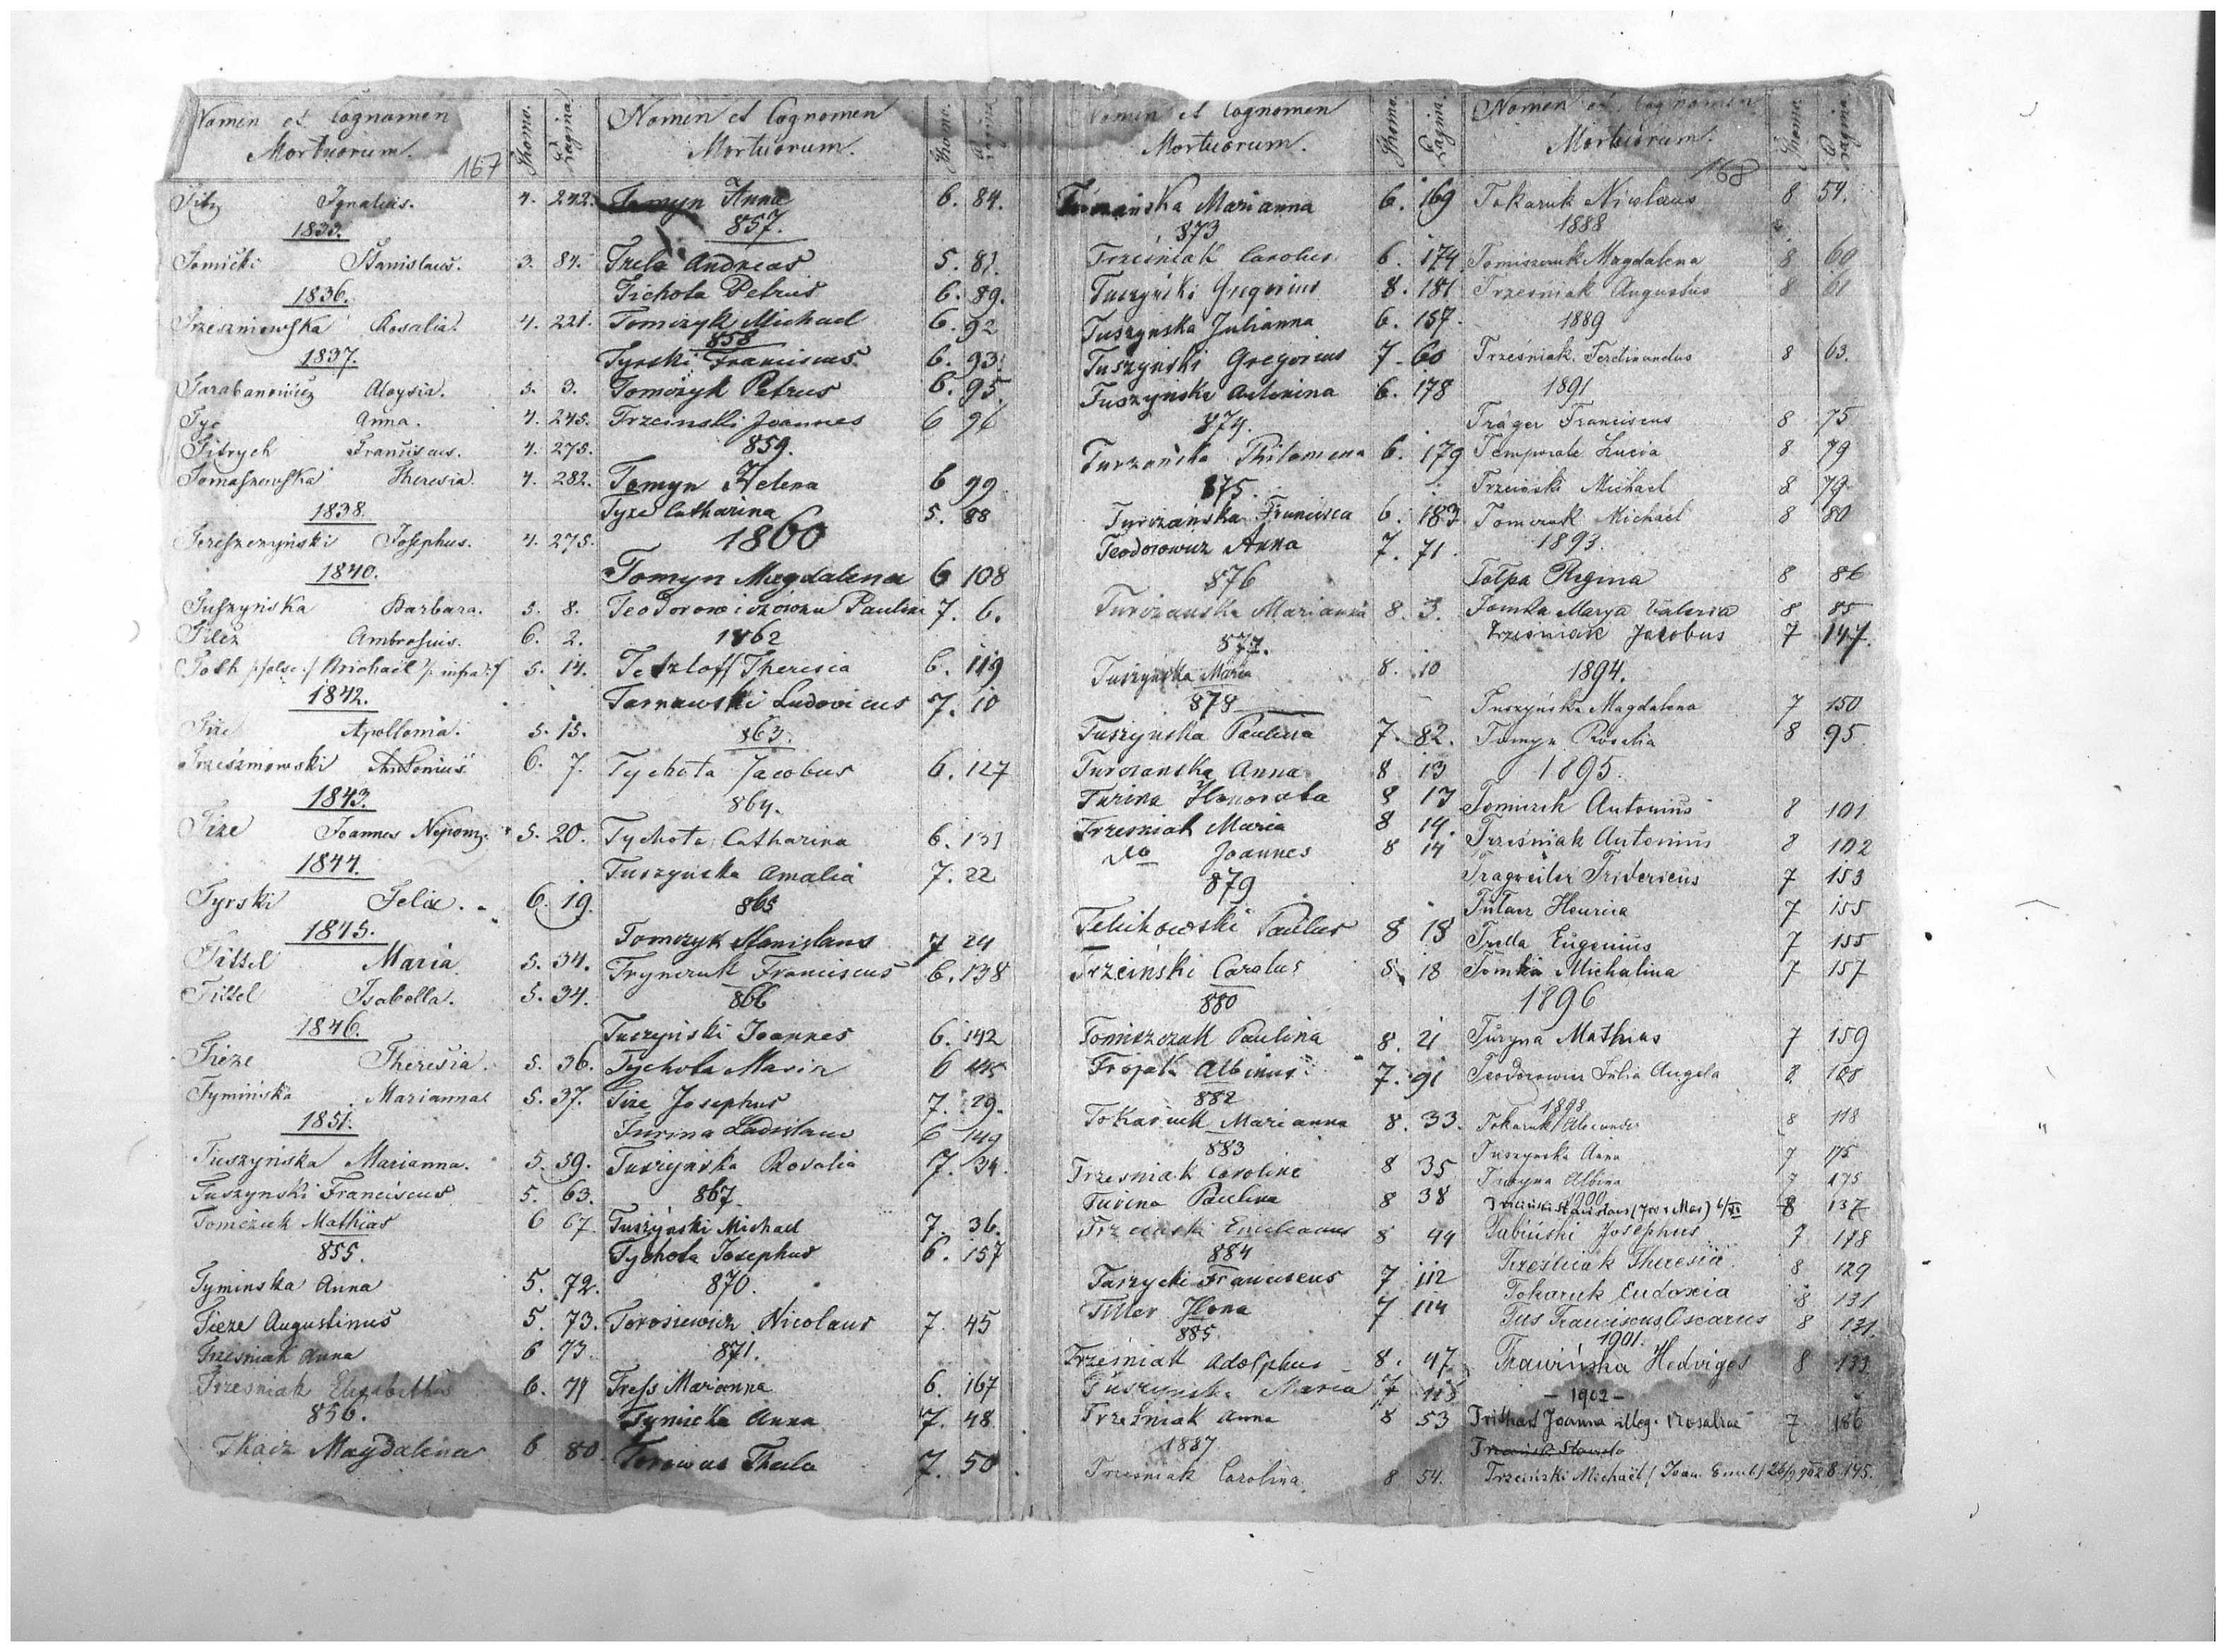 Nomen et Cognomen
Mortuorum.
167
Thomo.
Pagina
Titz Ignatius. 4. 242.
1835.
Tomicki Stanislaus. 3. 84.
1836.
Trzeszniowska Rosalia. 4. 221.
1837.
Tarabanowicz Aloysia. 5. 3.
Tyc Anna. 4. 245.
Titrych Franciscus. 4. 275.
Tomaszewska Theresia. 4. 282.
1838.
Josephus. 4. 275.
1840.
Tuszyńska Barbara. 5. 8.
Ambrosius. 6. 2.
Michaël 5. 14.
1842.
Tize Apollonia. 5. 15.
Trześniowski Antonius 6. 7.
1843.
Tize Joannes Nepom. 5. 20.
1844.
Tyrski Felix. 6. 19.
1845.
Tittel Maria 5. 34.
Tittel Isabella. 5. 34.
1846.
Tieze Theresia. 5. 36.
Tymińska Marianna 5. 37.
1851.
Tuszyńska Marianna. 5. 59.
Tuszynski Franciscus 5. 63.
Tomczuk Mathias 6 67
855.
Tyminska Anna 5. 72.
Tieze Augustinus 5. 73.
Trzesniak Anna 6 73
Trzesniak Elisabetha 6. 74
856.
Tkacz Magdalena 6 80
Nomen et Cognomen
Mortuorum.
Thomo.
Pagina
Tomyn Anna 6. 84.
857.
Trela Andreas 5. 81.
Tichota Petrus 6. 89.
Tomczyk Michael 6. 92
858
Tyrski Franciscus 6. 93.
Tomczyk Petrus 6. 95.
Trzcinski Joannes 6 96
859.
Tomyn Helena 6 99
Tyze Catharina 5. 88
1860
Tomyn Magdalena 6 108
Teodorowiczówna Paulina 7. 6.
1862
Tetzloff Theresia 6. 119
Tarnawski Ludovicus 7. 10
863.
Tychota Jacobus 6. 127
864.
Tychota Catharina 6. 131
Tuszyńska Amalia 7. 22
865
Tomczyk Stanislaus 7 24
Trynczuk Franciscus 6. 138
866
Tuszynski Joannes 6. 142
Tychota Maria 6 145
Tize Josephus 7. 29.
Turina Ladislaus 6 149
Tuszyńska Rosalia 7. 34.
867
Tuszyński Michael 7. 36.
Tychota Josephus 6. 157
870.
Torosiewicz Nicolaus 7. 45
871.
Tress Marianna 6. 167
Tymicka Anna 7. 48
Thecla 7. 50
Nomen et Cognomen
Mortuorum.
Thomo.
Pagina.
Marianna 6. 169
873
Trześniak Carolus 6. 174
Tuszyński Gregorius 8. 181
Tuszynska Julianna 6. 157
Tuszyński Gregorius 7 60
Tuszyńska Antonina 6. 178
874.
Turzańska Philomena 6. 179
875.
Turczańska Francisca 6. 183
Teodorowicz Anna 7. 71
876
Turczańska Marianna 8. 3.
877.
Tuszyńska Maria 8. 10
878
Tuszyńska Paulina 7. 82.
Turczanska Anna 8 13
Turina Honorata 8 13
Trzesniak Maria 8 14.
dto Joannes 8 14
879
Paulus 8 18
Trzciński Carolus 8 18
880
Tomiszczuk Paulina 8. 21
Albinus 7. 91
882
Tokaruk Marianna 8. 33.
883
Trzesniak Carolina 8 35
Turina Paulina 8 38
Trzcinski 8 44
884
Tarzycki Franciscus 7 112
Tiller Ilona 7 114
885
Trześniak Adolphus 8. 47
Tuszynska Maria 7
Trześniak Anna 8 53
1887
Trzesniak Carolina 8 54.
Nomen et Cognomen
Mortuorum.
168
Thomo.
Pagina
Tokaruk Nicolaus 8 54.
1888
Tomiszczuk Magdalena 8 60
Trzesniak Augustus 8 61
1889
Trześniak Ferdinandus 8 63.
1891
Träger Franciscus 8 75
Temporale Lucia 8 79
Trzcinski Michael 8 79
Tomczuk Michael 8 80
1893.
Tołpa Regina 8 86
Tomka Marya Valeria 8 85
Trzesniak Jacobus 7 147.
1894.
Tuszyńska Magdalena 7 150
Tomyn Rosalia 8 95
1895.
Antonius 8 101
Trześniak Antonius 8 102
Fridericus 7 153
Henrica 7 155
Trella Eugenius 7 155
Tomka Michalina 7 157
1896
Turyna Mathias 7 159
Teodorowicz Julia Angela 8
1898
Tokaruk 8 118
Tuszynska Anna 7 175
Turyna Albina 7 175
1900
8 137
Tabiński Josephus 7 178
Trześniak Theresia 8 129
Tokaruk Eudoxia 8 131
Tus Franciscus Oscarus 8 131.
1901.
Trawińska Hedviges 8 133
- 1902 -
Joanna illeg. Rosaliae 7 186
Trzciński Michaël 8. 145.